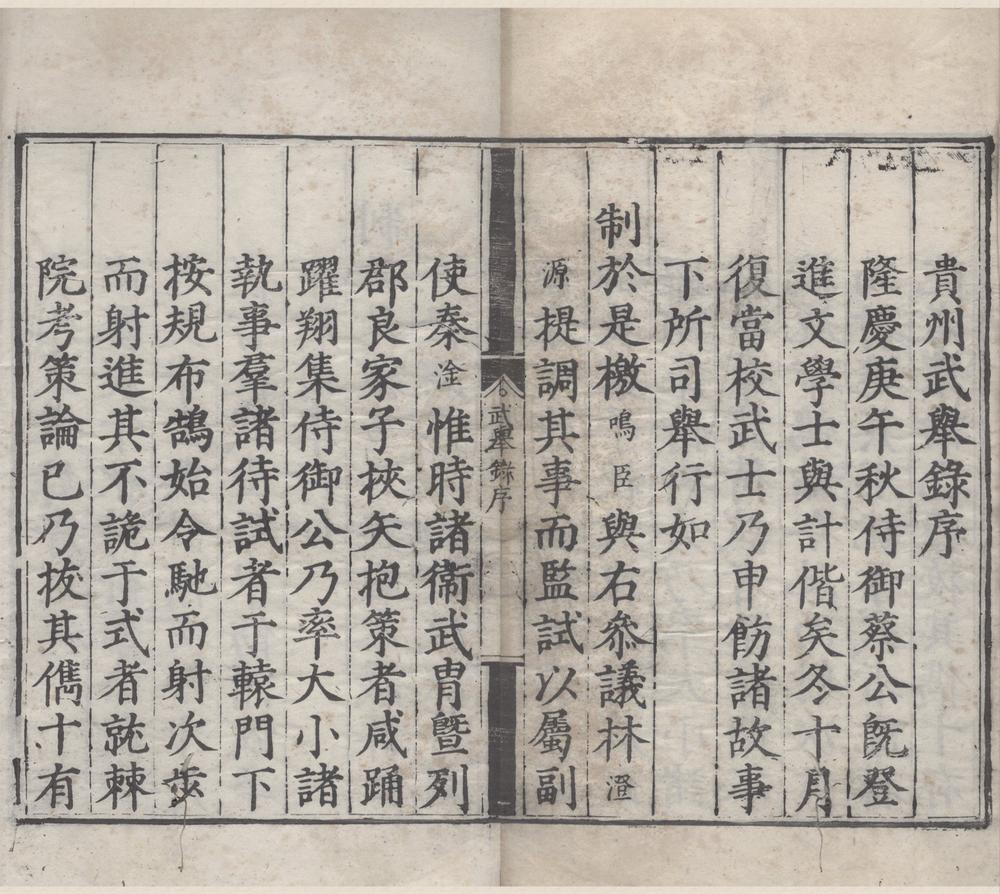 貴州武舉錄序
隆慶庚午秋侍御蔡公旣登
進文學士與計偕矣冬十月
復當校武士乃申飭諸故事
下所司舉行如
制於是檄鳴臣與右叅議林澄
源提調其事而監試以屬副
武舉錄序
使秦淦惟時諸衞武胄曁列
郡良家子挾矢抱策者咸踊
躍翔集侍御公乃率大小諸
執事羣諸待試者于轅門下
桉規布鵠始令馳而射次步
而射進其不詭于式者就棘
院考策論已乃拔其儁十有